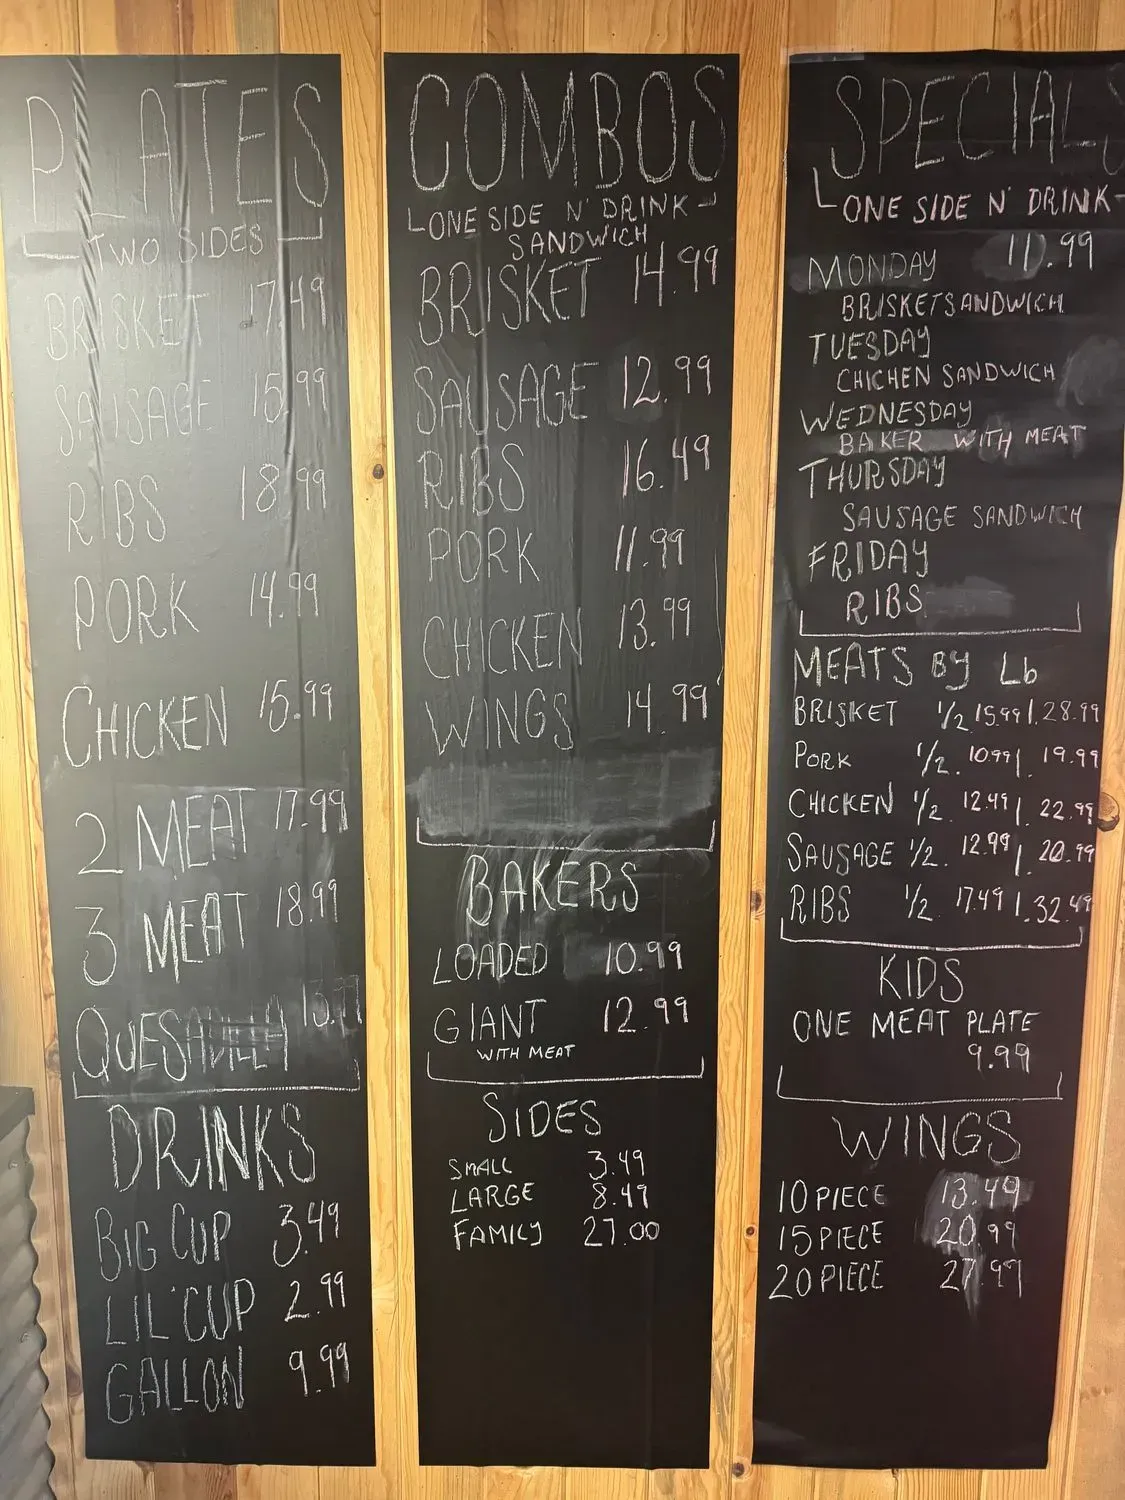 PLATES
TWO SIDES
BRISKET 17.49
SAUSAGE 15.99
RIBS 18.99
PORK 14.99
CHICKEN 15.99
2 MEAT 17.99
3 MEAT 18.99
QUESADILLA
DRINKS
BIG CUP 3.49
LIL' CUP 2.99
GALLON 9.99
COMBOS
ONE SIDE N' DRINK
SANDWICH
BRISKET 14.99
SAUSAGE 12.99
RIBS 16.49
PORK 11.99
CHICKEN 13.99
WINGS 14.99
BAKERS
LOADED 10.99
GIANT 12.99
WITH MEAT
SIDES
SMALL 3.49
LARGE 8.49
FAMILY 27.00
SPECIALS
ONE SIDE N' DRINK
MONDAY 11.99
BRISKET SANDWICH
TUESDAY
CHICHEN SANDWICH
WEDNESDAY
BAKER WITH MEAT
THURSDAY
SAUSAGE SANDWICH
FRIDAY
RIBS
MEATS BY Lb
BRISKET 1/2 15.99 | . 28.99
PORK 1/2. 10.99 | . 19.99
CHICKEN 1/2. 12.49 | . 22.99
SAUSAGE 1/2. 12.99 | . 20.99
RIBS 1/2. 17.49 | . 32.49
KIDS
ONE MEAT PLATE
9.99
WINGS
10 PIECE 13.49
15 PIECE 20.99
20 PIECE 27.99